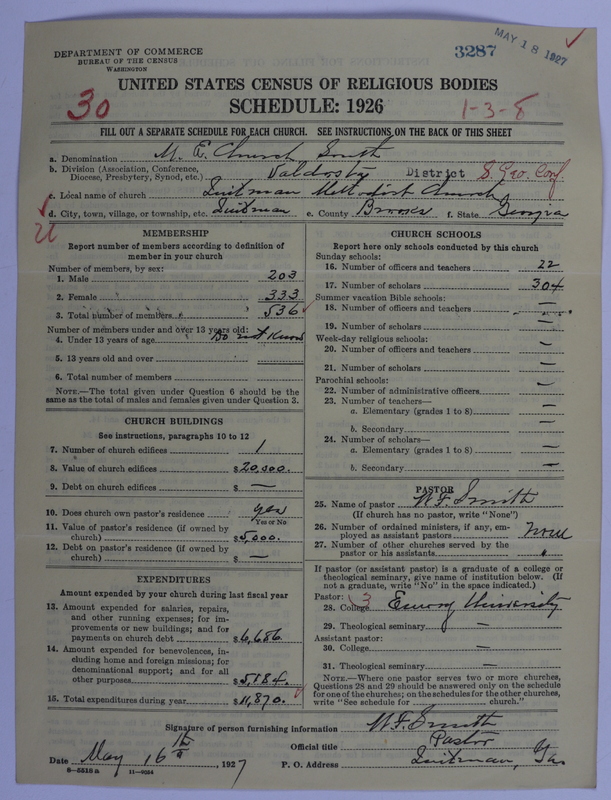 DEPARTMENT OF COMMERCE
BUREAU OF THE CENSUS
WASHINGTON
3287
MAY 18 1927
UNITED STATES CENSUS OF RELIGIOUS BODIES
30
SCHEDULE: 1926
1-3-8
FILL OUT A SEPARATE SCHEDULE FOR EACH CHURCH. SEE INSTRUCTIONS ON THE BACK OF THIS SHEET
a. Denomination M. E. Church South
b. Division (Association, Conference, Diocese, Presbytery, Synod, etc.) Valdosta District S. Geo. Conf
c. Local name of church Quitman Methodist Church
d. City, town, village, or township, etc. Quitman e. County Brooks f. State Georgia
MEMBERSHIP
Report number of members according to definition of
member in your church
Number of members, by sex:
1. Male 203
2. Female 333
3. Total number of members 536
Number of members under and over 13 years old:
4. Under 13 years of age Do not Know
5. 13 years old and over
6. Total number of members
NOTE.—The total given under Question 6 should be
same as the total of males and females given under Question 3.
CHURCH BUILDINGS
See instructions, paragraphs 10 to 12
7. Number of church edifices 1
8. Value of church edifices $20,000.
9. Debt on church edifices $ —
10. Does church own pastor's residence yes
Yes or No
11. Value of pastor's residence (if owned by
church) $5,000.
12. Debt on pastor's residence (if owned by
church) $ —
EXPENDITURES
Amount expended by your church during last fiscal year
13. Amount expended for salaries, repairs,
and other running expenses; for im-
provements or new buildings; and for
payments on church debt $6,686
14. Amount expended for benevolences, in-
cluding home and foreign missions; for
denominational support; and for all
other purposes $5,184.
15. Total expenditures during year $11,870.
CHURCH SCHOOLS
Report here only schools conducted by this church
Sunday schools:
16. Number of officers and teachers 22
17. Number of scholars 304
Summer vacation Bible schools:
18. Number of officers and teachers —
19. Number of scholars —
Week-day religious schools:
20. Number of officers and teachers —
21. Number of scholars —
Parochial schools:
22. Number of administrative officers —
23. Number of teachers—
a. Elementary (grades 1 to 8) —
b. Secondary —
24. Number of scholars—
a. Elementary (grades 1 to 8) —
b. Secondary —
PASTOR
25. Name of pastor W. F. Smith
(If church has no pastor, write "None")
26. Number of ordained ministers, if any, em-
ployed as assistant pastors None
27. Number of other churches served by the
pastor or his assistants "
If pastor (or assistant pastor) is a graduate of a college or
theological seminary, give name of institution below. (If
not a graduate, write "No" in the space indicated.)
Pastor:
28. College 3 Emory University
29. Theological seminary —
Assistant pastor:
30. College —
31. Theological seminary —
NOTE.—Where one pastor serves two or more churches,
Questions 28 and 29 should be answered only on the schedule
for one of the churches; on the schedules for the other churches,
write "See schedule for church."
Signature of person furnishing information W. F. Smith
Official title Pastor
Date May 16th, 1927 P. O. Address Quitman, Ga
8-5518 a 11-9034